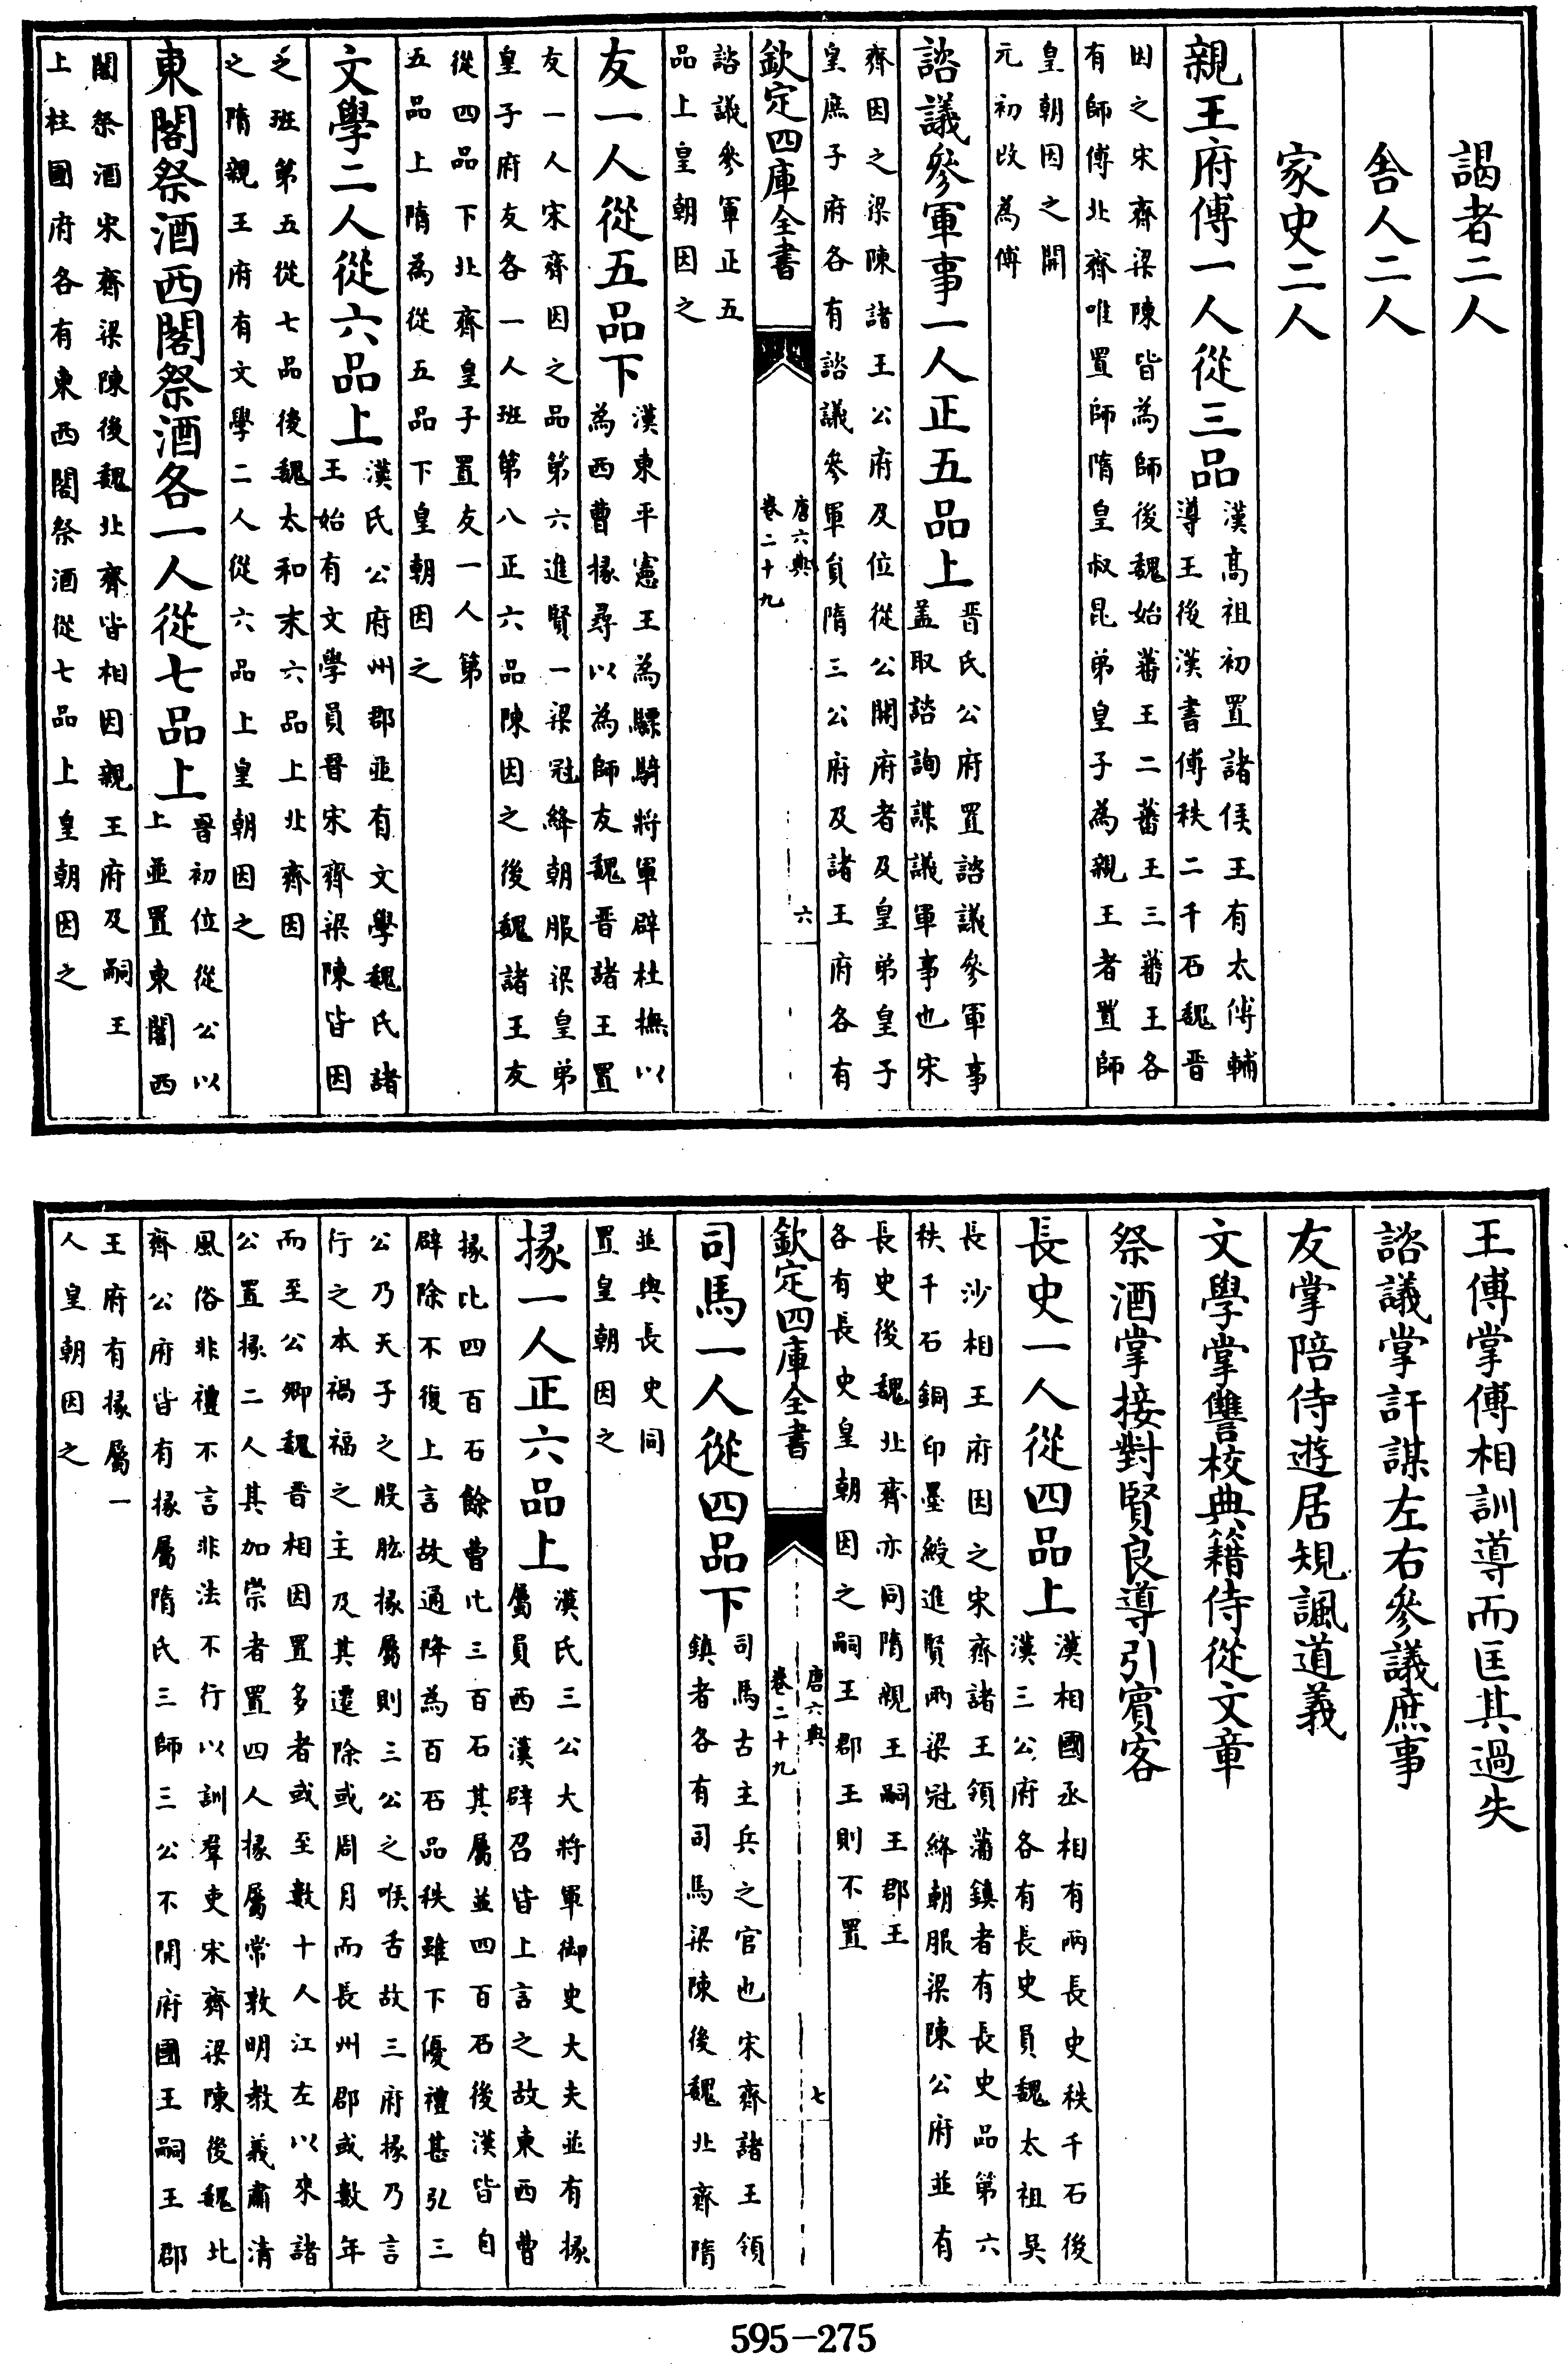 謁者二人
舎人二人
家史二人
親王府傅一人從三品漢髙祖初置諸侯王有太傅輔導王後漢書傅秩二千石魏晉
因之宋齊梁陳皆為師後魏始蕃王二蕃王三蕃王各有師傅北齊唯置師隋皇叔昆弟皇子為親王者置師
皇朝因之開元初改為傅
諮議參軍事一人正五品上晋氏公府置諮議參軍事蓋取諮詢謀議軍事也宋
齊因之梁陳諸王公府及位從公開府者及皇弟皇子皇庶子府各有諮議參軍員隋三公府及諸王府各有
欽定四庫全書
唐六典
卷二十九
六
諮議參軍正五品上皇朝因之
友一人從五品下漢東平憲王為驃騎將軍辟杜撫以為西曹掾尋以為師友魏晉諸王置
友一人宋齊因之品第六進賢一梁冠絳朝服梁皇弟皇子府友各一人班第八正六品陳因之後魏諸王友
從四品下北齊皇子置友一人第五品上隋為從五品下皇朝因之
文學二人從六品上漢氏公府州郡並有文學魏氏諸王始有文學員晉宋齊梁陳皆因
之班第五從七品後魏太和末六品上北齊因之隋親王府有文學二人從六品上皇朝因之
東閣祭酒西閣祭酒各一人從七品上晉初位從公以上並置東閣西
閣祭酒宋齊梁陳後魏北齊皆相因親王府及嗣王上柱國府各有東西閣祭酒從七品上皇朝因之
王傅掌傅相訓導而匡其過失
諮議掌訏謀左右參議庶事
友掌陪侍遊居規諷道義
文學掌讐校典籍侍從文章
祭酒掌接對賢良導引賓客
長史一人從四品上漢相國丞相有兩長史秩千石後漢三公府各有長史員魏太祖吳
長沙相王府因之宋齊諸王領蒲鎮者有長史品第六秩千石銅印墨綬進賢兩梁冠絳朝服梁陳公府並有
長史後魏北齊亦同隋親王嗣王郡王各有長史皇朝因之嗣王郡王則不置
欽定四庫全書
唐六典
卷二十九
七
司馬一人從四品下司馬古主兵之官也宋齊諸王領鎮者各有司馬梁陳後魏北齊隋
並與長史同置皇朝因之
掾一人正六品上漢氏三公大將軍御史大夫並有掾屬員西漢辟召皆上言之故東西曹
掾比四百石餘曹比三百石其屬並四百石後漢皆自辟除不復上言故通降為百石品秩雖下優禮甚弘三
公乃天子之股肱掾屬則三公之喉舌故三府掾乃言行之本禍福之主及其遷除或周月而長州郡或數年
而至公卿魏晋相因置多者或至數十人江左以來諸公置掾二人其加崇者置四人掾屬常敦明教義肅清
風俗非禮不言非法不行以訓羣吏宋齊梁陳後魏北齊公府皆有掾屬隋氏三師三公不開府國王嗣王郡
王府有掾屬一人皇朝因之
595-275